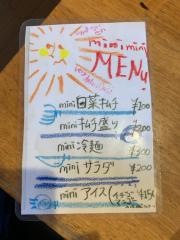 mini mini
MENU
mini 白菜キムチ ¥200
mini キムチ盛り ¥300
mini 冷麺 ¥300
mini サラダ ¥200
mini アイス ¥150